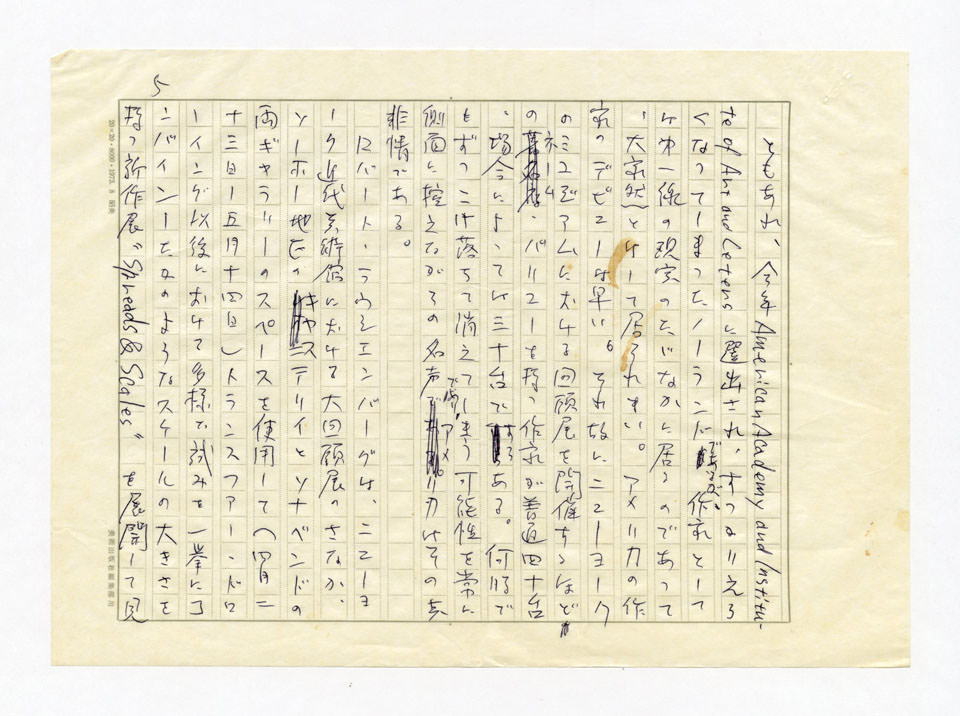 5
ともあれ、今年 American Academy and Institu-
te of Art and Letters に選出され、すっかりえら
くなってしまったノーランド 作家として
は第一線の現実のたゞなかに居るのであって
、大家然としては居られまい。アメリカの作
家のデビューは早い。それ故にニューヨーク
のミュゼアムに於ける回顧展を開催するほど
の 、バリューを持つ作家が普通四十台
、場合によっては三十台で ある。何時で
もずっこけ落ちて消えてしまう可能性を常に
側面に控えながらの名声であり アメリカはその点
非情である。
ロバート・ラウシェンバーグは、ニューヨ
ーク近代美術館に於ける大回顧展のさなか、
ソーホー地区のキャステリイとソナベンドの
両ギャラリーのスペースを使用して(四月二
十三日ー五月十四日)トランスファー・ドロ
ーイング以後に於ける多様な試みを一挙にコ
ンバインしたかのようなスケールの大きさを
持つ新作展“Spreads & Scales”を展開して見
20×20・8000・1973. 5